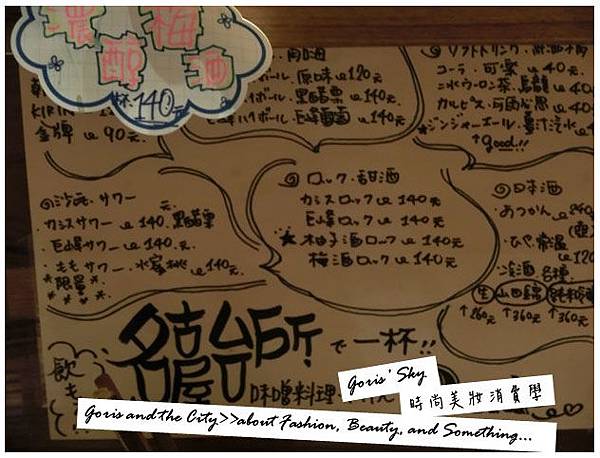 濃醇梅酒
一杯 140元
KIRIN
金牌 ue 90元
原味 ue 120元
ハイボール・黒醋栗 ue 140元
巨峰ハイボール・巨峰葡萄 ue 140元
ソフトドリンク・無酒精
コーラ・可楽 ue 40元
ニ氷ウーロン茶・烏龍 ue 40元
カルピス・可爾必思 ue 40元
★ジンジャーエール・薑汁汽水 ue
↑good!!
◎沙瓦・サワー
カシスサワー ue 140元 黒醋栗
巨峰サワー ue 140元
ももサワー・水蜜桃 ue 140元
*限量*
◎ロック・甜酒
カシスロック ue 140元
巨峰ロック ue 140元
★柚子酒ロック ue 140元
梅酒ロック ue 140元
◎日本酒
あつかん
ひや・常温
冷酒各種
生 山田錦
↑260元 ↑360元 ↑360元
名古屋台所で一杯!!
味噌料理
飲
Goris' Sky
時尚美妝消費學
Goris and the City>>about Fashion, Beauty, and Something...